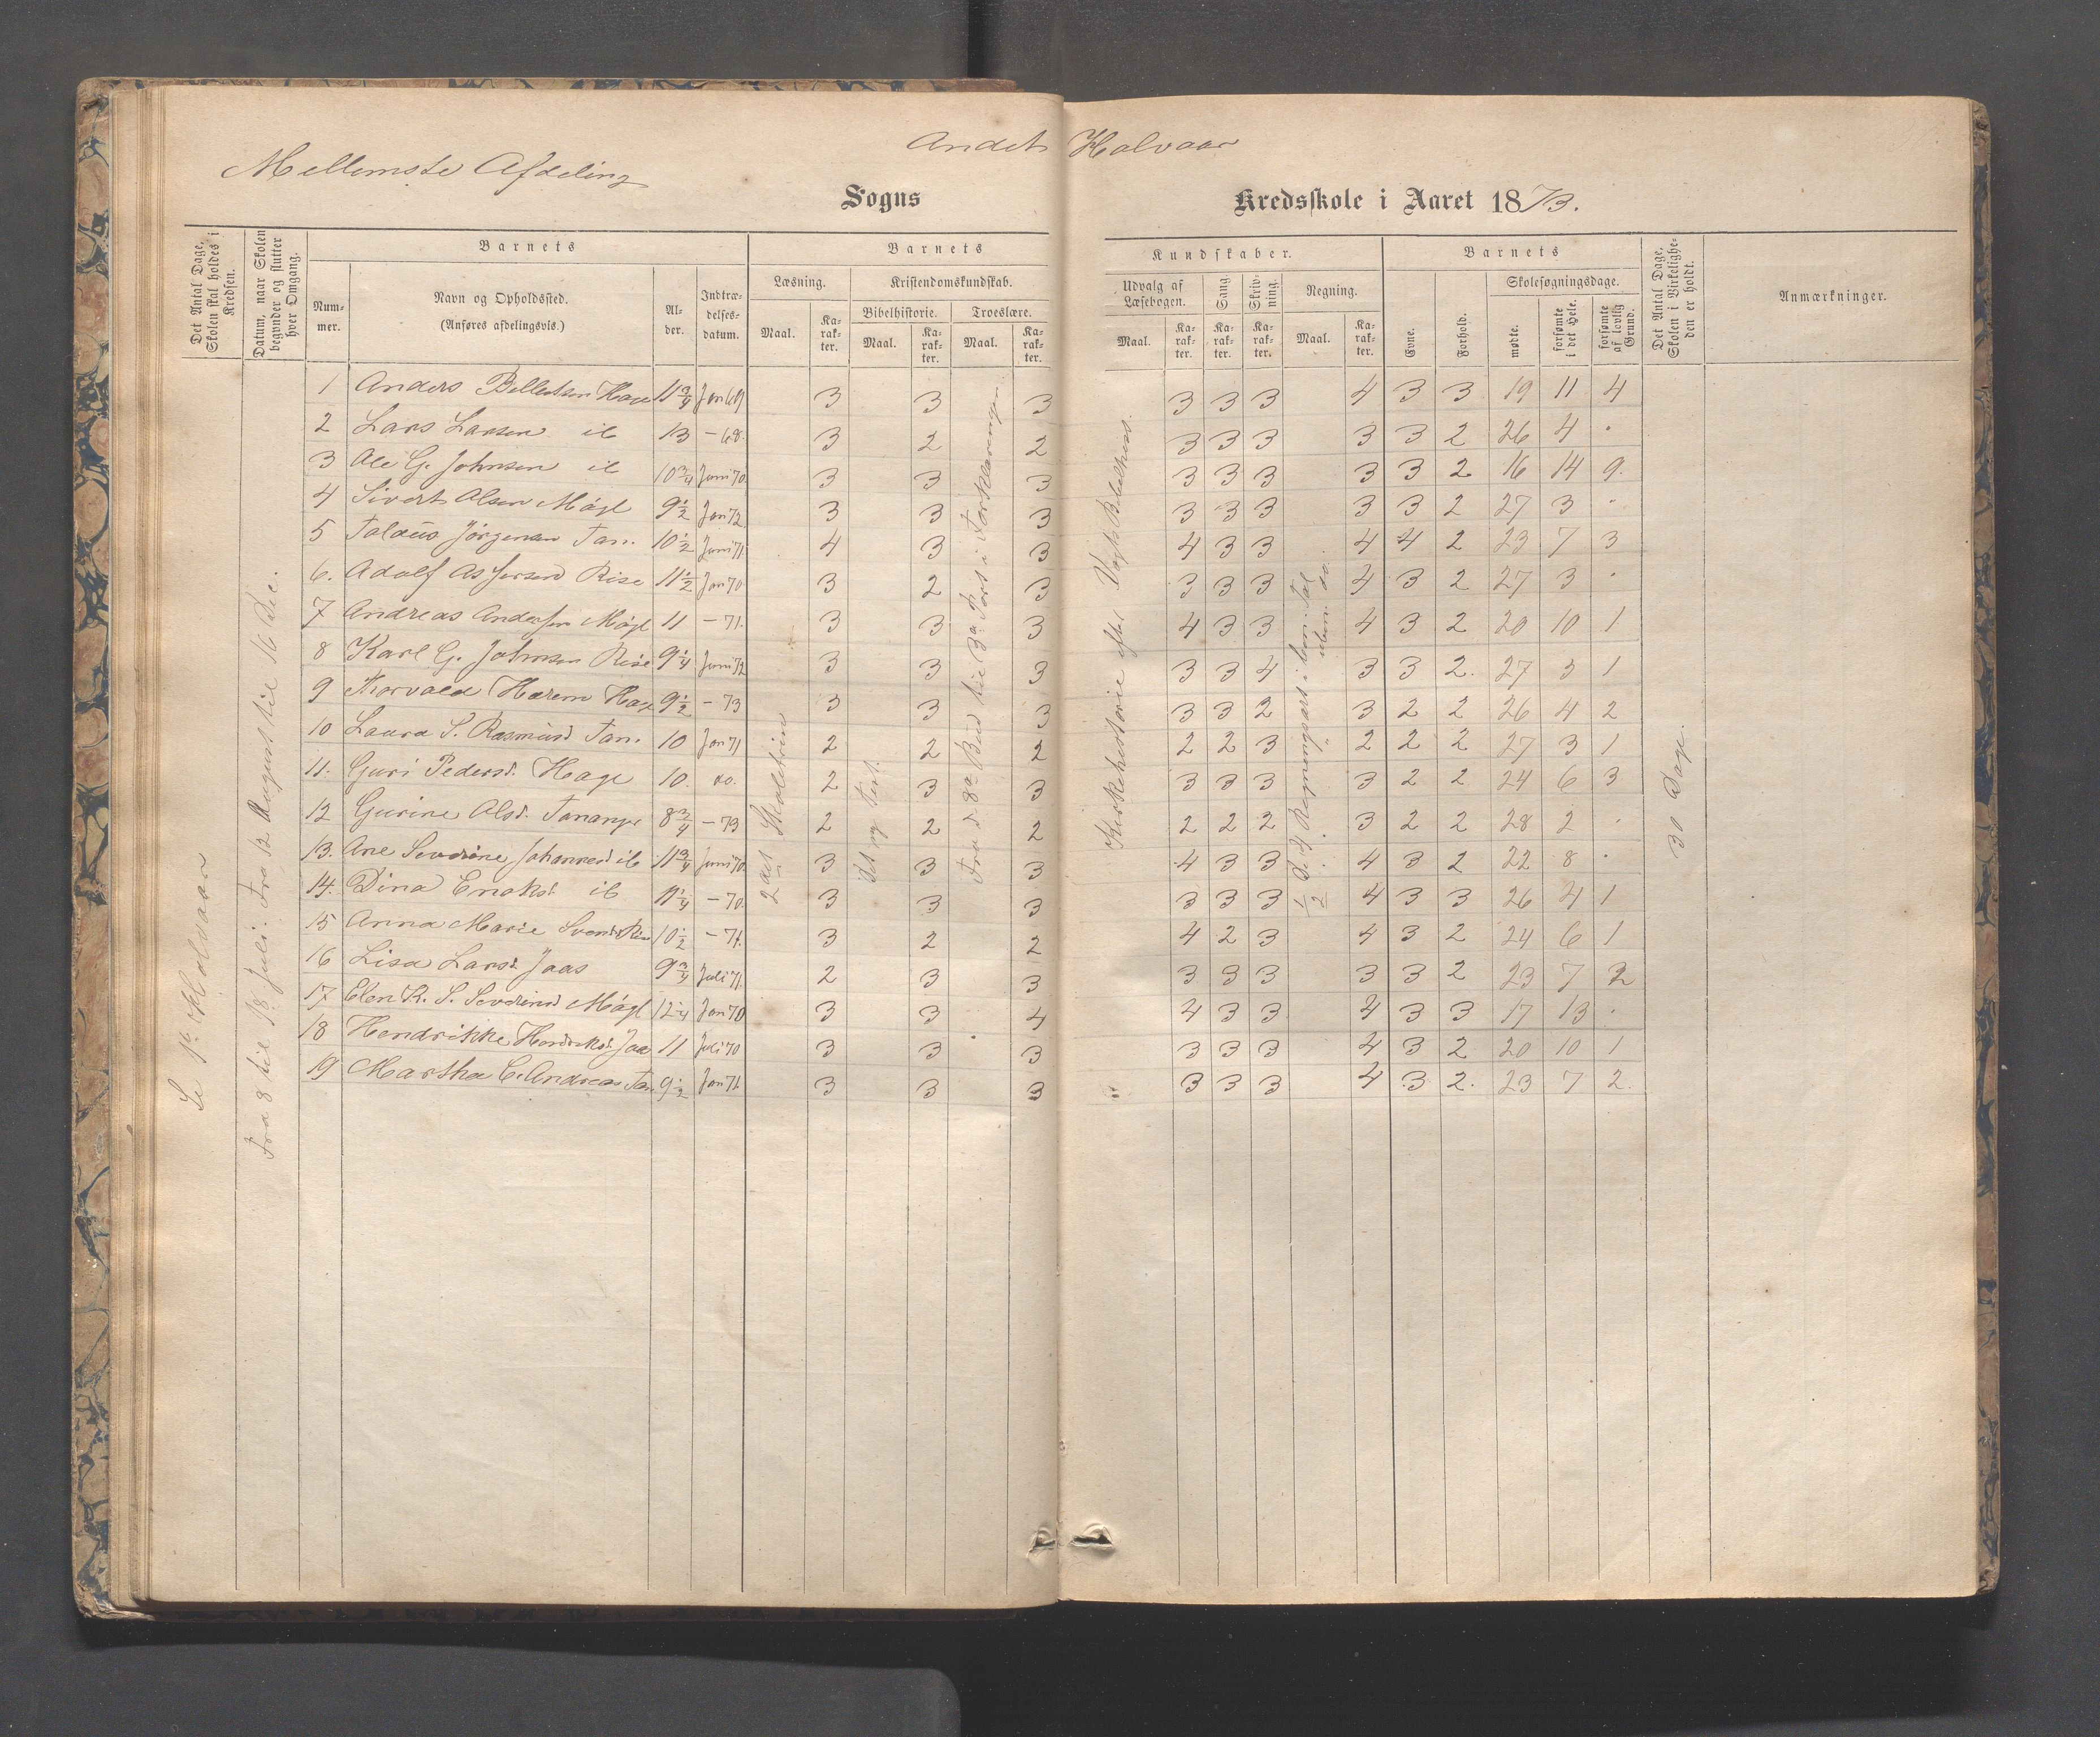 Andet Halvaar
Mellemste Afdeling
Sogns Kredsskole i Aaret 1873.
Det Antal Dage, Skolen skal holdes i Kredsen.
Datum, naar Skolen begynder og slutter hver Omgang.
Barnets
Nummer.
Navn og Opholdssted.
(Anføres afdelingsvis.)
Alder.
Indtrædelsesdatum.
Barnets Kundskaber.
Læsning.
Maal.
Karakter.
Kristendomskundskab.
Bibelhistorie.
Maal.
Karakter.
Troeslære.
Maal.
Karakter.
Udvalg af Læsebogen.
Maal.
Karakter.
Sang
Karakter.
Skrivning.
Karakter.
Regning.
Maal.
Karakter.
Barnets
Evne.
Forhold.
Skolesøgningsdage.
mødte.
forsømte i det Hele.
forsømte af lovlig Grund.
Det Antal Dage, Skolen i Virkeligheden er holdt.
Anmærkninger.
Se 1ste Halvaar
Fra 8 til 18 Juli. Fra 12 August til 16 Dec.
2det Skoletrin
Fra d. 8de Bud til 3die Part i Forklaringen.
Kirkehistorie efter Vogts Bibelhist.
30 Dage.
1 Anders 11 3/4 Jan 69 3 3 3 3 3 3 4 3 3 19 11 4
2 Lars Larsen ib 13 – 68. 3 2 2 3 3 3 3 3 2 26 4 .
3 Ole G. Johnsen ib 10 3/4 Juni 70. 3 3 3 3 3 3 3 3 2. 16 14 9.
4 Sivert Olsen Møgl 9 1/2 Jan 72. 3 3 3 3 3 3 3 3 2 27 3 .
5 Jørgensen Tan. 10 1/2 Juni 71. 4 3 3 4 3 3 4 4 2 23 7 3
6. Adolf Asserson Rise 11 1/2 Jan 70 3 2 3 3 3 3 4 3 2 27 3 .
7 Andreas Andersen Møgl 11 – 71. 3 3 3 4 3 3 4 3 2 20 10 1
8 Karl G. Johnsen Rise 9 1/4 Juni 72 3 3 3 3 3 4 3 3 2. 27 3 1
9 Thorvald Harem 9 1/2 – 73 3 3 3 3 3 2 3 2 2 26 4 2
10 Laura S. Rasmusd Tan. 10 Jan 71 2 2 2 2 2 3 2 2 2 27 3 1
11. Guri Pedersd. Hage 10. do. 2 3 3 3 3 3 3 2 2 24 6 3
12 Gurine Olsd. Tananger 8 3/4 – 73 2 2 2 2 2 2 3 2 2 28 2 .
13. Ane Severine Johannesd ib 11 3/4 Juni 70. 3 3 3 4 3 3 4 3 2 22 8 .
14. Dina Enoksd. ib 11 1/4 – 70. 3 3 3 3 3 3 4 3 3 26 4 1
15 Anna Marie 10 1/2 – 71. 3 2 2 4 2 3 4 3 2 24 6 1
16 Lisa Larsd. Jaas 9 3/4 Juli 71. 2 3 3 3 3 3 3 3 2 23 7 2
17 Elen K. S. Severinsd Møgl 12 1/4 Jan 70 3 3 4 4 3 3 4 3 3 17 13 .
18 Hendrikke Hendriksd. Jaa 11 Juli 70 3 3 3 3 3 3 4 3 2 20 10 1
19 Martha C. Andreas Tan. 9 1/2 Jan 71 3 3 3 3 3 3 4 3 2. 23 7 2.